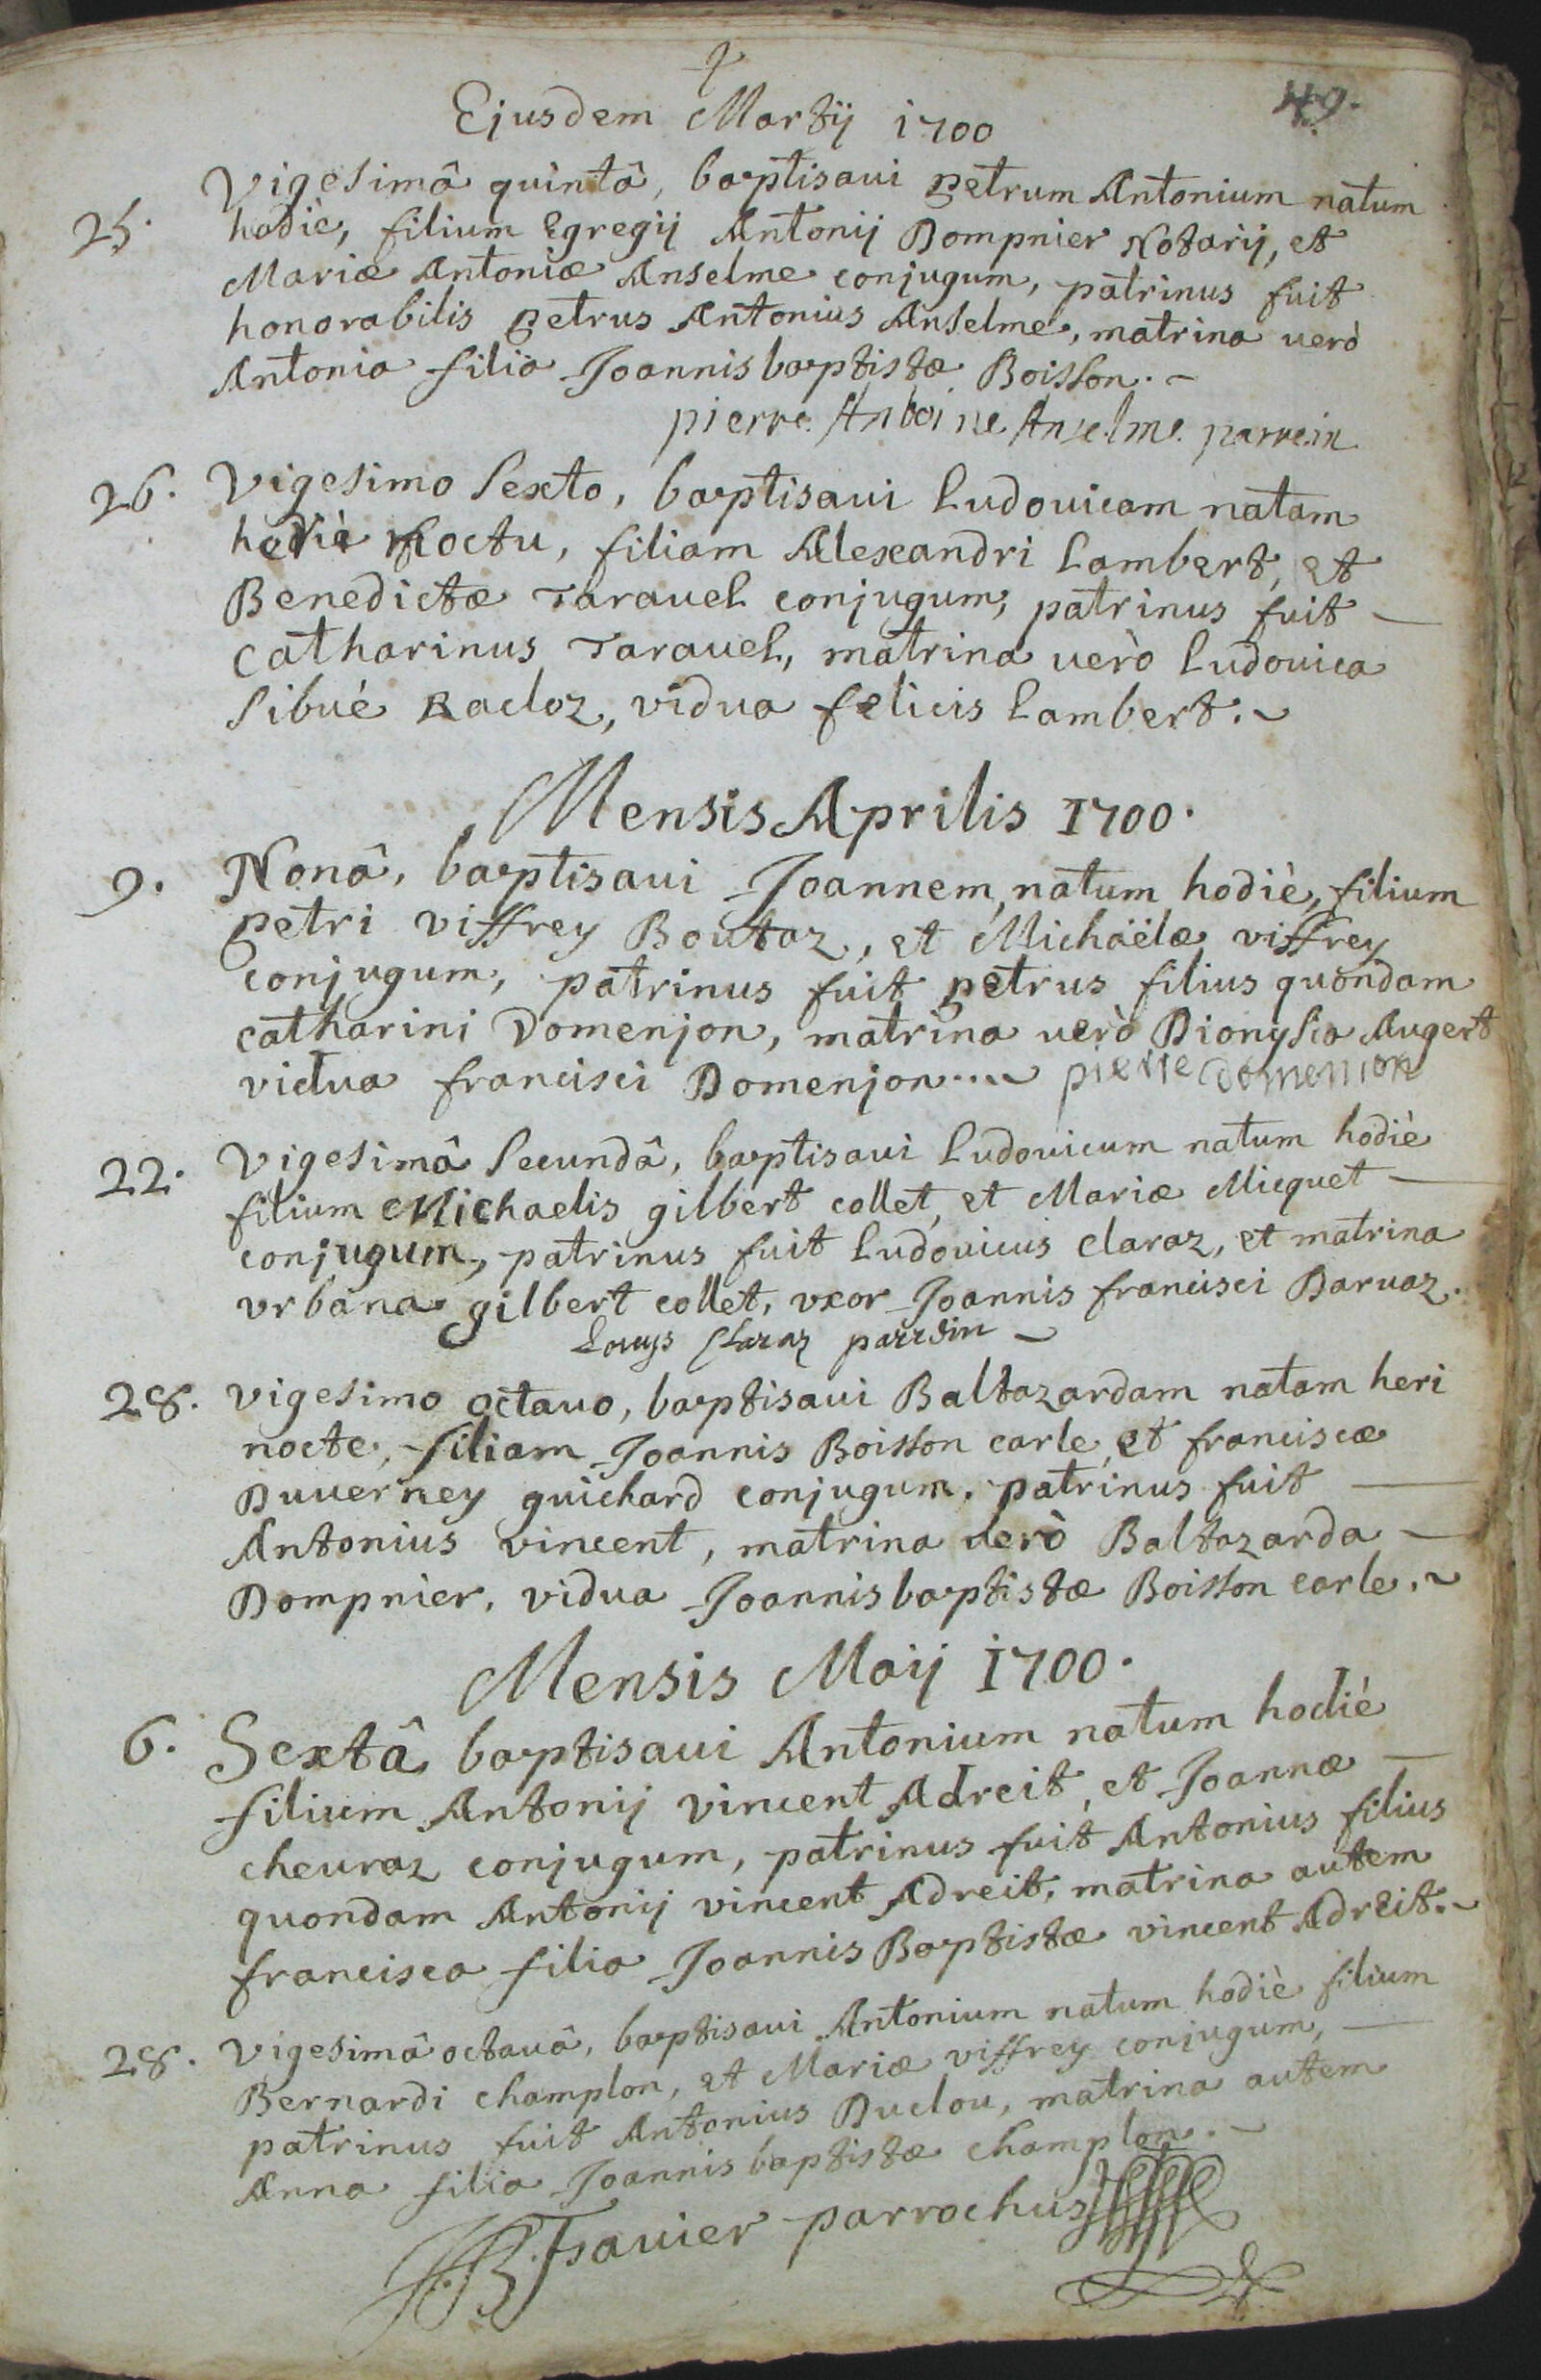 49.
Ejusdem Martij 1700
25. Vigesimâ quintâ, baptisaui petrum Antonium natum
hodiè, filium Egregij Antonij Dompnier Notarij, et
Mariæ Antoniæ Anselme conjugum, patrinus fuit
honorabilis petrus Antonius Anselme, matrina uerò
Antonia filia Joannisbaptistæ Boisson.
pierre Antoine Anselme parrein
26. Vigesimo sexto, baptisaui Ludouicam natam
hodiè noctu, filiam Alexandri Lambert, et
Benedictæ Tarauel conjugum, patrinus fuit
catharinus Tarauel, matrina uerò Ludouica
Sibué Racloz, vidua felicis Lambert.
Mensis Aprilis 1700.
9. Nonâ, baptisaui Joannem, natum hodiè, filium
petri viffrey Boutaz, et Michaëlæ viffrey
conjugum, patrinus fuit petrus filius quondam
catharini Domenjon, matrina uerò Dionysia Augert
vidua francisci Domenjon... pierre domenion
22. Vigesimâ Secundâ, baptisaui Ludouicum natum hodiè
filium Michaelis gilbert collet, et Mariæ Micquet
conjugum, patrinus fuit Ludouicus claraz, et matrina
vrbana gilbert collet, vxor Joannis francisci Daruaz.
Louys Claraz parrein
28. vigesimo octauo, baptisaui Baltazardam natam heri
nocte, filiam Joannis Boisson carle, et franciscæ
Duuerney guichard conjugum, patrinus fuit
Antonius vincent, matrina uerò Baltazarda
Dompnier, vidua Joannisbaptistæ Boisson carle.
Mensis Maij 1700.
6. Sextâ baptisaui Antonium natum hodiè
filium Antonij vincent Adreit, et Joannæ
cheuraz conjugum, patrinus fuit Antonius filius
quondam Antonij vincent Adreit, matrina autem
francisca filia Joannis Baptistæ vincent Adreit.
28. Vigesimâ octauâ, baptisaui Antonium natum hodiè filium
Bernardi champlon, et Mariæ viffrey conjugum,
patrinus fuit Antonius Duclou, matrina autem
Anna filia Joannisbaptistæ champlon.
parrochus